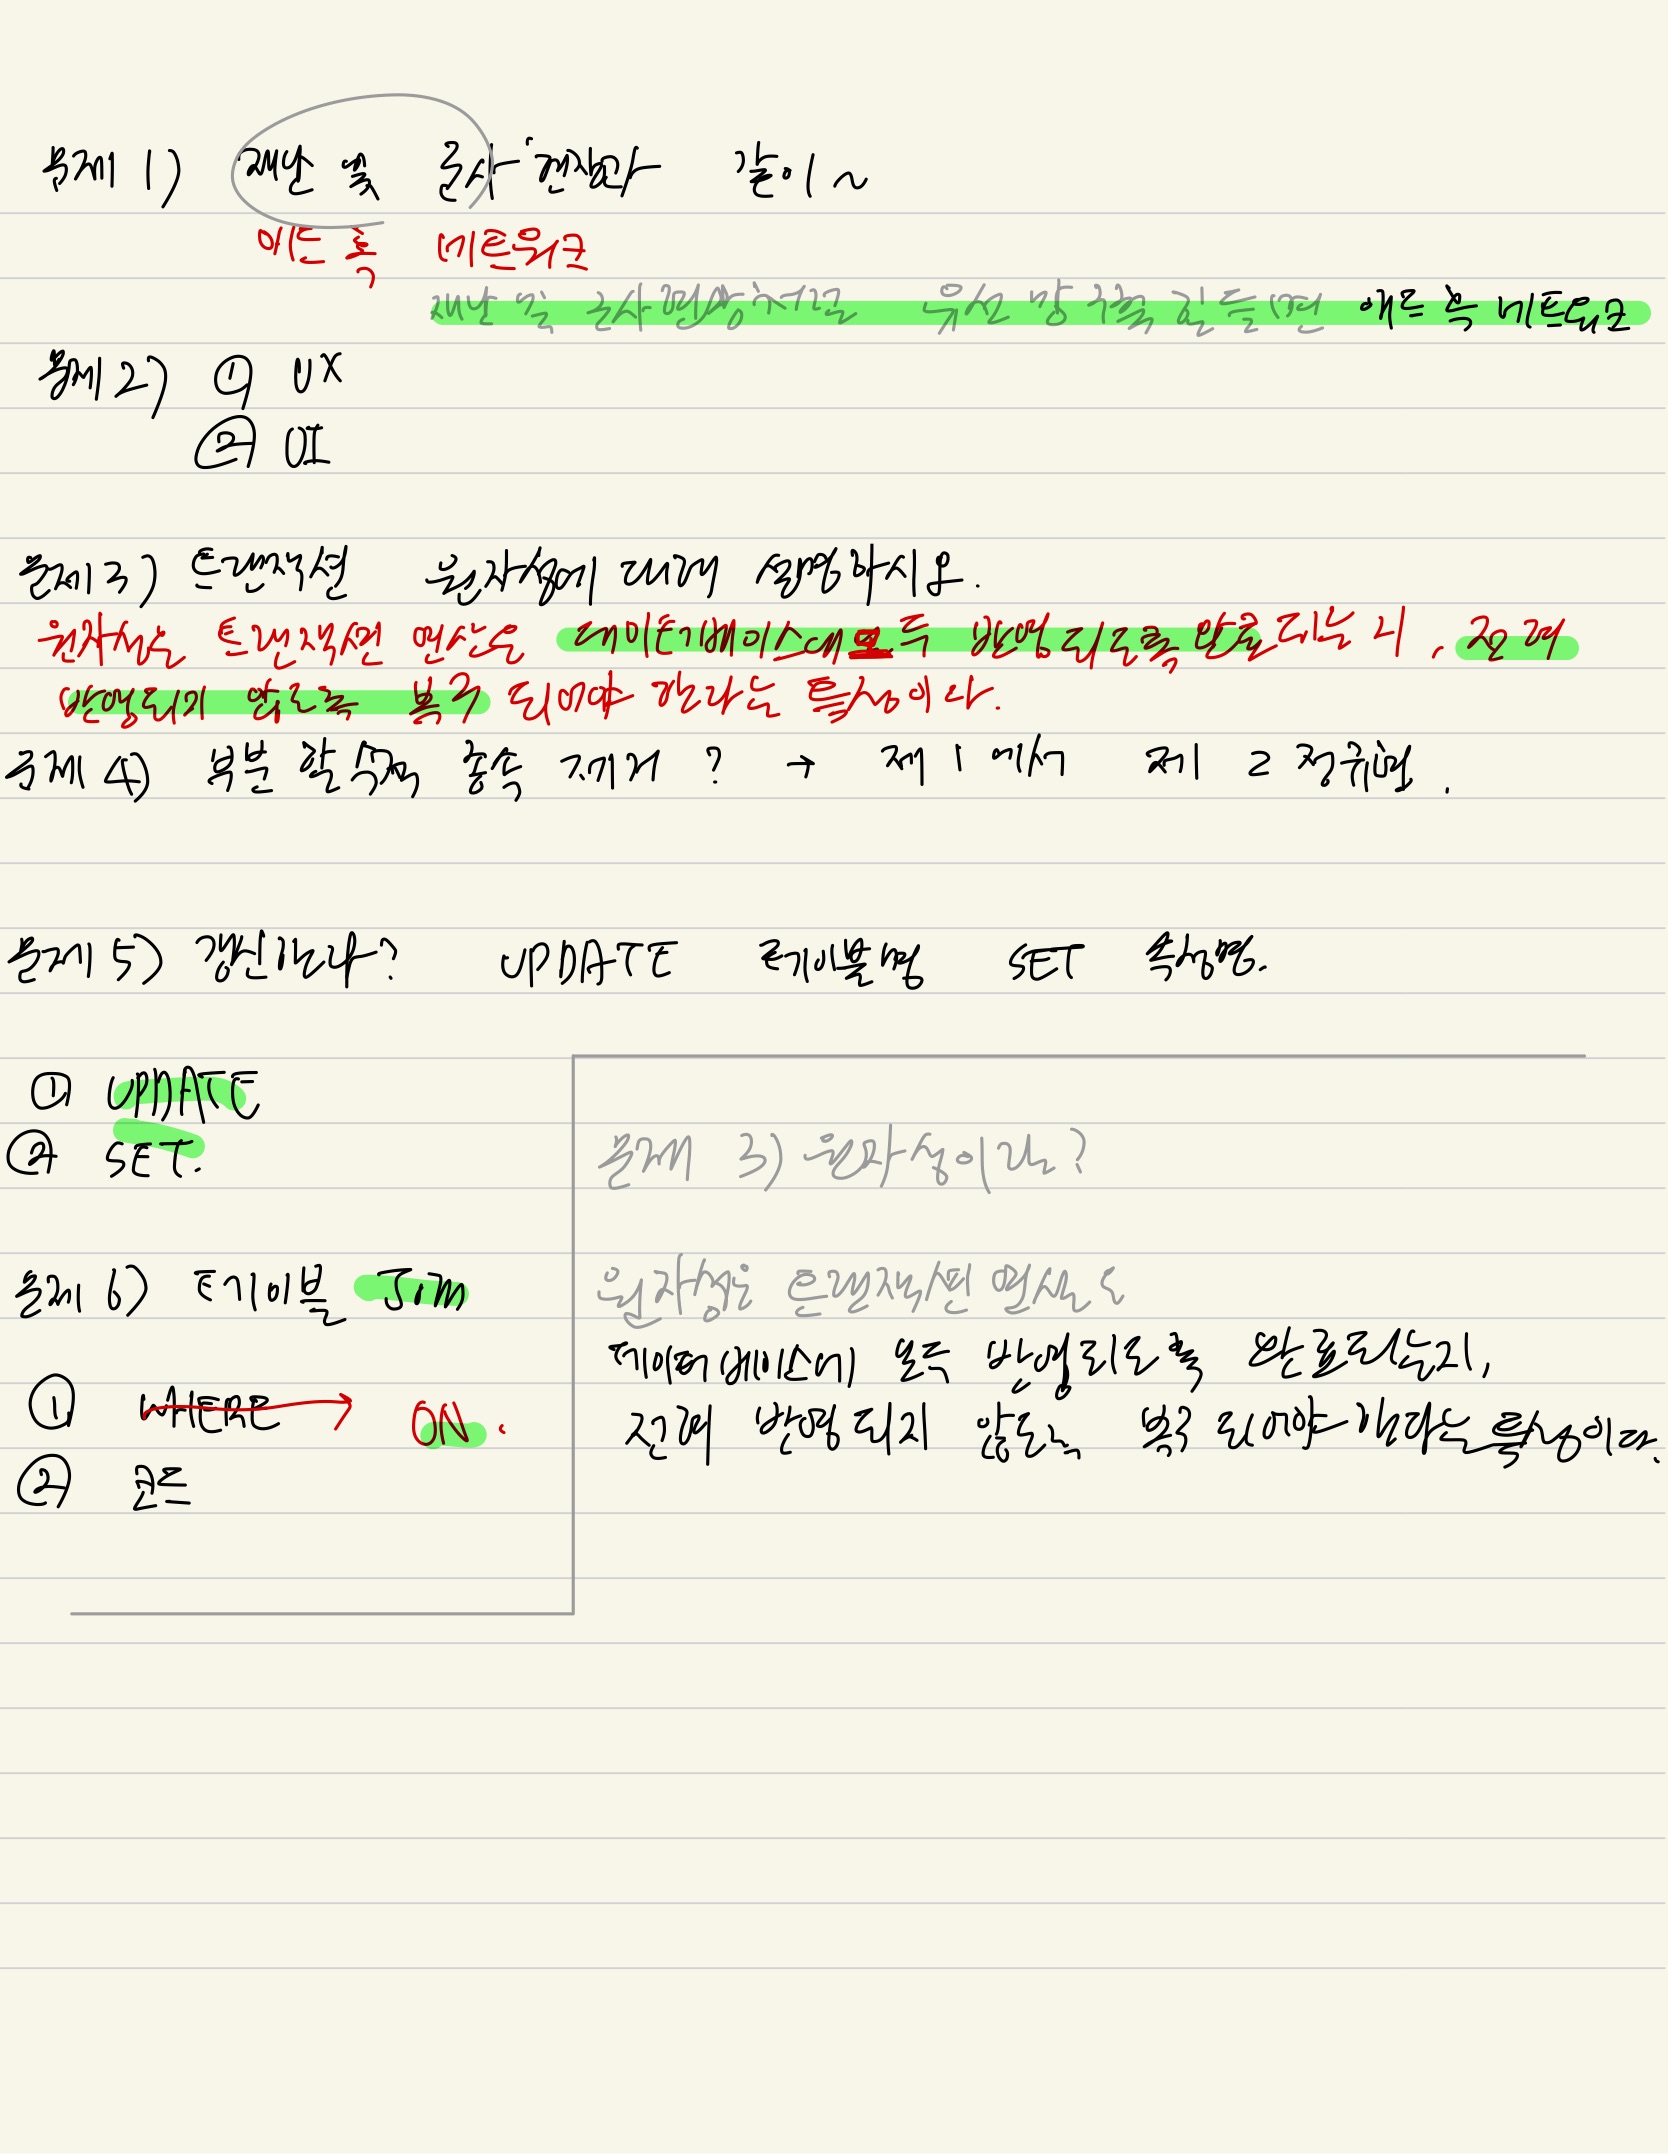 문제 1) 재난 및 군사 현장과 같이~
애드 혹 네트워크
재난 및 군사현장처럼 유선 망 구축 힘들면 애드 혹 네트워크
문제 2) ① UX
② UI
문제 3) 트랜잭션 원자성에 대해 설명하시오.
원자성은 트랜잭션 연산은 데이터베이스에 모두 반영되도록 완료되는지, 전혀
반영되지 않도록 복구 되어야 한다는 특성이다.
문제 4) 부분 함수적 종속 제거? → 제 1에서 제 2 정규형.
문제 5) 갱신하라? UPDATE 테이블명 SET 속성명.
① UPDATE
② SET.
문제 6) 테이블 Join
① WHERE → ON.
② 코드
문제 3) 원자성이란?
원자성은 트랜잭션 연산은
데이터베이스에 모두 반영되도록 완료되는지,
전혀 반영되지 않도록 복구되어야 한다는 특성이다.